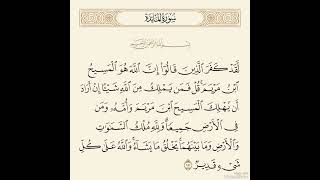 سُورَةُ المَائِدَة
بِسْمِ اللَّهِ الرَّحْمَٰنِ الرَّحِيمِ
لَقَدْ كَفَرَ الَّذِينَ قَالُوا إِنَّ اللَّهَ هُوَ الْمَسِيحُ
ابْنُ مَرْيَمَ قُلْ فَمَن يَمْلِكُ مِنَ اللَّهِ شَيْئًا إِنْ أَرَادَ
أَن يُهْلِكَ الْمَسِيحَ ابْنَ مَرْيَمَ وَأُمَّهُ وَمَن
فِي الْأَرْضِ جَمِيعًا وَلِلَّهِ مُلْكُ السَّمَٰوَٰتِ
وَالْأَرْضِ وَمَا بَيْنَهُمَا يَخْلُقُ مَا يَشَاءُ وَاللَّهُ عَلَىٰ كُلِّ
شَيْءٍ قَدِيرٌ ١٧